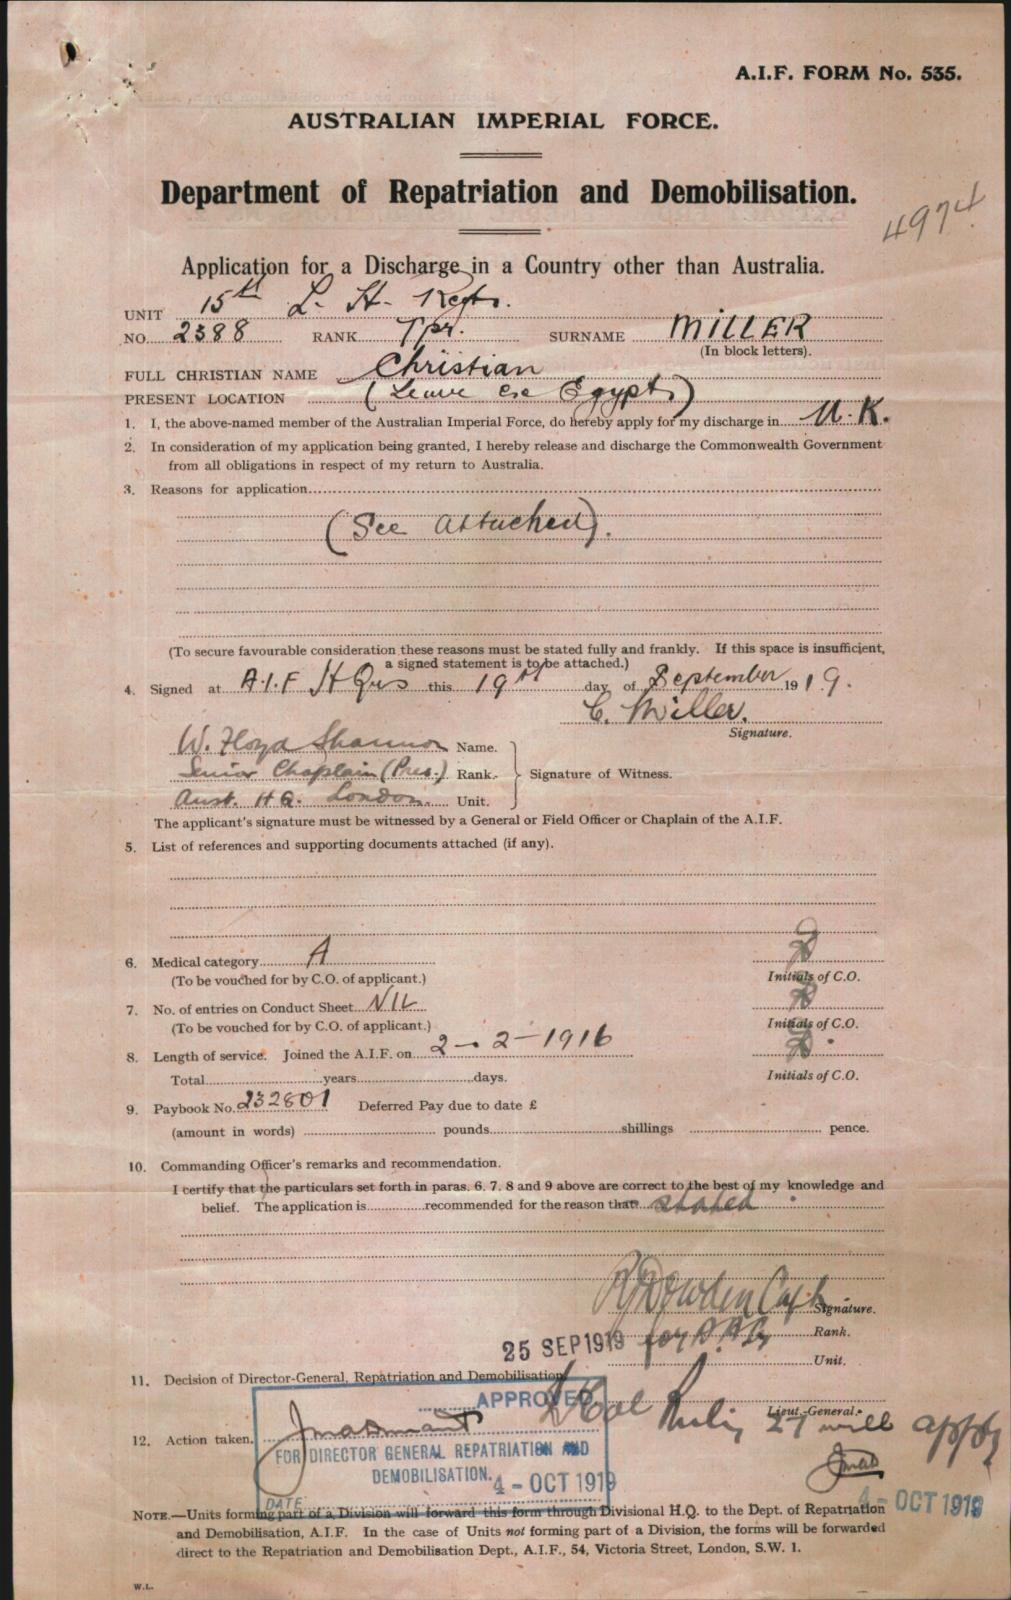 A.I.F. FORM No. 535.
AUSTRALIAN IMPERIAL FORCE.
Department of Repatriation and Demobilisation.
4974
Application for a Discharge in a Country other than Australia.
UNIT 15th L. H. Regt.
NO. 2388 RANK Tpr. SURNAME MILLER
(In block letters).
FULL CHRISTIAN NAME Christian
PRESENT LOCATION (Leave exe Egypt)
1. I, the above-named member of the Australian Imperial Force, do hereby apply for my discharge in U.K.
2. In consideration of my application being granted, I hereby release and discharge the Commonwealth Government
from all obligations in respect of my return to Australia.
3. Reasons for application
(See attached).
(To secure favourable consideration these reasons must be stated fully and frankly. If this space is insufficient,
a signed statement is to be attached.)
4. Signed at A.I.F HQrs this 19th day of September 1919.
C. Miller.
Signature.
W. Floyd Shannon Name.
Senior Chaplain (Pres.) Rank. Signature of Witness.
Aust. HQ. London. Unit.
The applicant's signature must be witnessed by a General or Field Officer or Chaplain of the A.I.F.
5. List of references and supporting documents attached (if any).
6. Medical category A
(To be vouched for by C.O. of applicant.) Initials of C.O.
7. No. of entries on Conduct Sheet NIL
(To be vouched for by C.O. of applicant.) Initials of C.O.
8. Length of service. Joined the A.I.F. on 2-2-1916
Total years days. Initials of C.O.
9. Paybook No. 232801 Deferred Pay due to date £
(amount in words) pounds shillings pence.
10. Commanding Officer's remarks and recommendation.
I certify that the particulars set forth in paras. 6. 7. 8 and 9 above are correct to the best of my knowledge and
belief. The application is recommended for the reason that stated
Dowden Capt Signature.
25 SEP 1919 for Rank.
Unit.
11. Decision of Director-General, Repatriation and Demobilisation
APPROVED
Lieut.-General.
will apply
12. Action taken.
FOR DIRECTOR GENERAL REPATRIATION AND
DEMOBILISATION.
DATE 4 - OCT 1919
4 - OCT 1919
NOTE.—Units forming part of a Division will forward this form through Divisional H.Q. to the Dept. of Repatriation
and Demobilisation, A.I.F. In the case of Units not forming part of a Division, the forms will be forwarded
direct to the Repatriation and Demobilisation Dept., A.I.F., 54, Victoria Street, London, S.W. 1.
W.L.